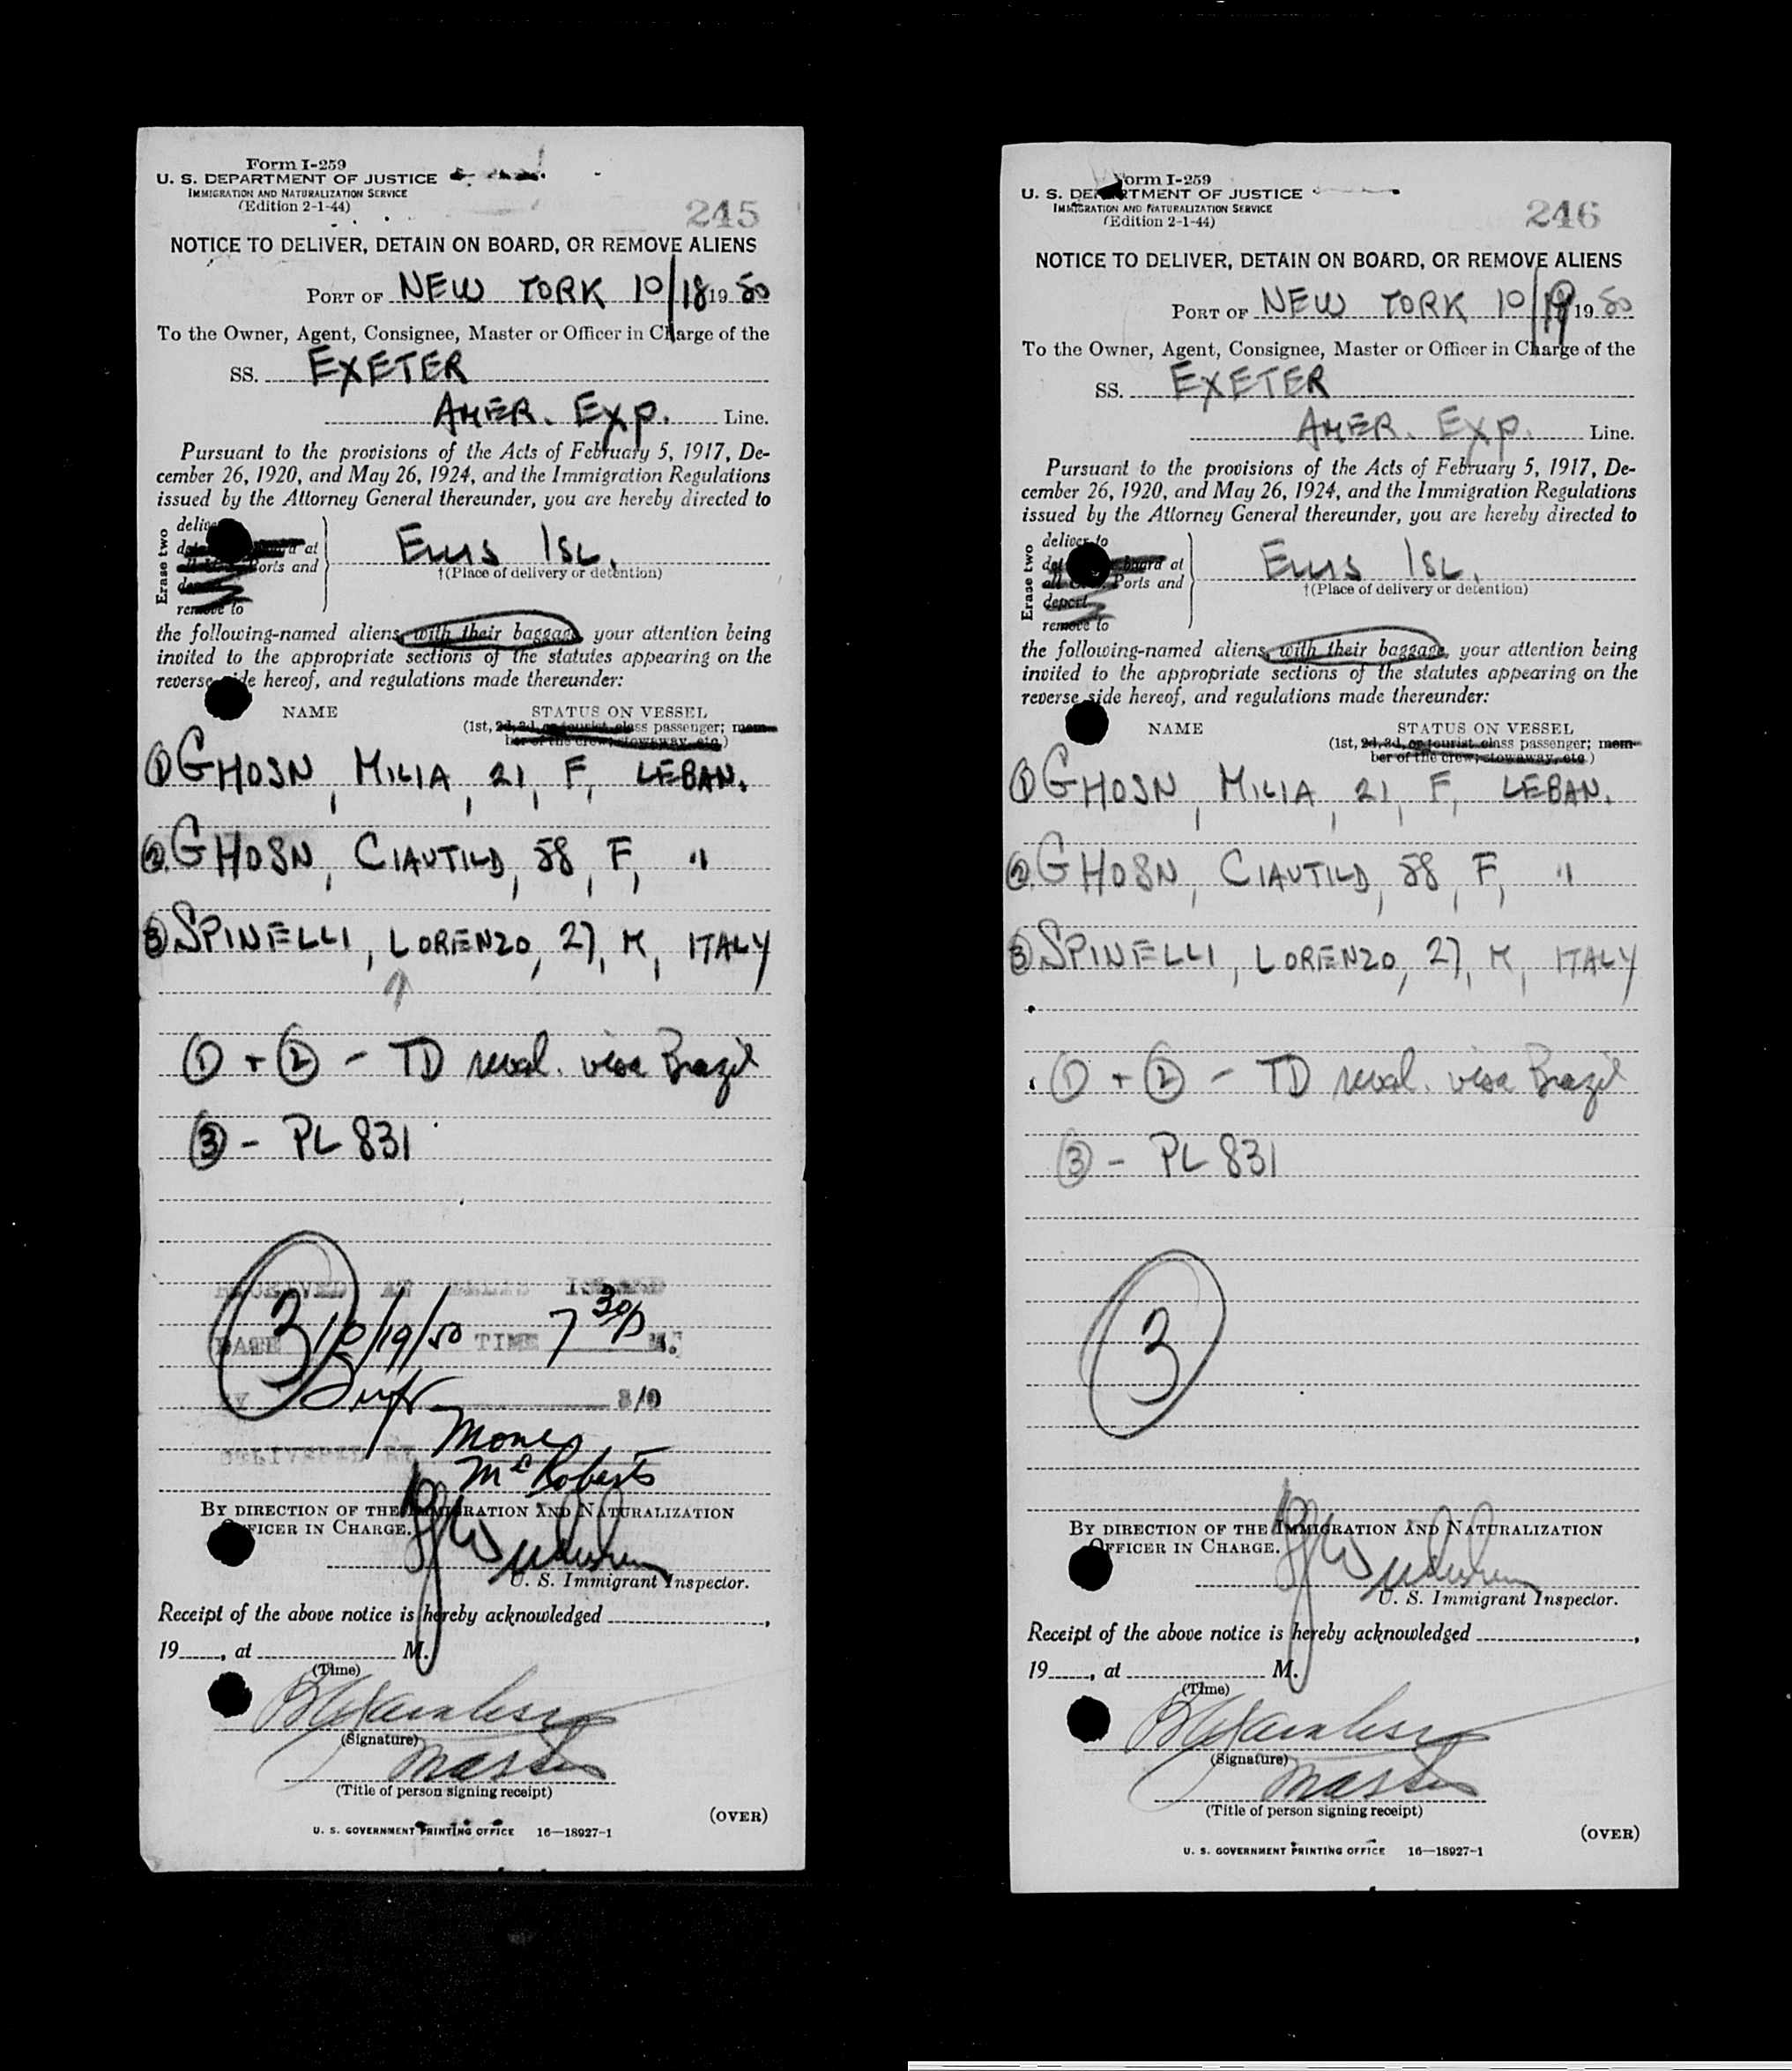 Form I-259
U. S. DEPARTMENT OF JUSTICE
IMMIGRATION AND NATURALIZATION SERVICE
(Edition 2-1-44)
245
NOTICE TO DELIVER, DETAIN ON BOARD, OR REMOVE ALIENS
PORT OF NEW YORK 10/18 19 50
To the Owner, Agent, Consignee, Master or Officer in Charge of the
SS. EXETER
AMER. EXP. Line.
Pursuant to the provisions of the Acts of February 5, 1917, De-
cember 26, 1920, and May 26, 1924, and the Immigration Regulations
issued by the Attorney General thereunder, you are hereby directed to
Erase two
at
Ports and
remove to
ELLIS ISL.
†(Place of delivery or detention)
the following-named aliens, with their baggage, your attention being
invited to the appropriate sections of the statutes appearing on the
reverse side hereof, and regulations made thereunder:
NAME STATUS ON VESSEL
(1st, 2d, 3d, or tourist class passenger; mem-
ber of the crew; stowaway, etc.)
① GHOSN, MILIA, 21, F, LEBAN.
②. GHOSN, CIAUTILD, 58, F, "
③ SPINELLI, LORENZO, 27, M, ITALY
① + ② - TD visa Brazil
③ - PL 831
RECEIVED AT ELLIS ISLAND
3
DATE 10/19/50 TIME 7 30 P M.
BY
DELIVERED BY
McRoberts
BY DIRECTION OF THE IMMIGRATION AND NATURALIZATION
OFFICER IN CHARGE.
U. S. Immigrant Inspector.
Receipt of the above notice is hereby acknowledged
19 , at M.
(Time)
(Signature)
Master
(Title of person signing receipt)
(OVER)
U. S. GOVERNMENT PRINTING OFFICE 16—18927-1
Form I-259
U. S. DEPARTMENT OF JUSTICE
IMMIGRATION AND NATURALIZATION SERVICE
(Edition 2-1-44)
246
NOTICE TO DELIVER, DETAIN ON BOARD, OR REMOVE ALIENS
PORT OF NEW YORK 10/19 19 50
To the Owner, Agent, Consignee, Master or Officer in Charge of the
SS. EXETER
AMER. EXP. Line.
Pursuant to the provisions of the Acts of February 5, 1917, De-
cember 26, 1920, and May 26, 1924, and the Immigration Regulations
issued by the Attorney General thereunder, you are hereby directed to
Erase two
deliver to
board at
all Ports and
deport
remove to
ELLIS ISL.
†(Place of delivery or detention)
the following-named aliens, with their baggage, your attention being
invited to the appropriate sections of the statutes appearing on the
reverse side hereof, and regulations made thereunder:
NAME STATUS ON VESSEL
(1st, 2d, 3d, or tourist class passenger; mem-
ber of the crew; stowaway, etc.)
① GHOSN, MILIA, 21, F, LEBAN.
②. GHOSN, CIAUTILD, 58, F, "
③ SPINELLI, LORENZO, 27, M, ITALY
① + ② - TD visa Brazil
③ - PL 831
3
BY DIRECTION OF THE IMMIGRATION AND NATURALIZATION
OFFICER IN CHARGE.
U. S. Immigrant Inspector.
Receipt of the above notice is hereby acknowledged
19 , at M.
(Time)
(Signature)
Master
(Title of person signing receipt)
(OVER)
U. S. GOVERNMENT PRINTING OFFICE 16—18927-1